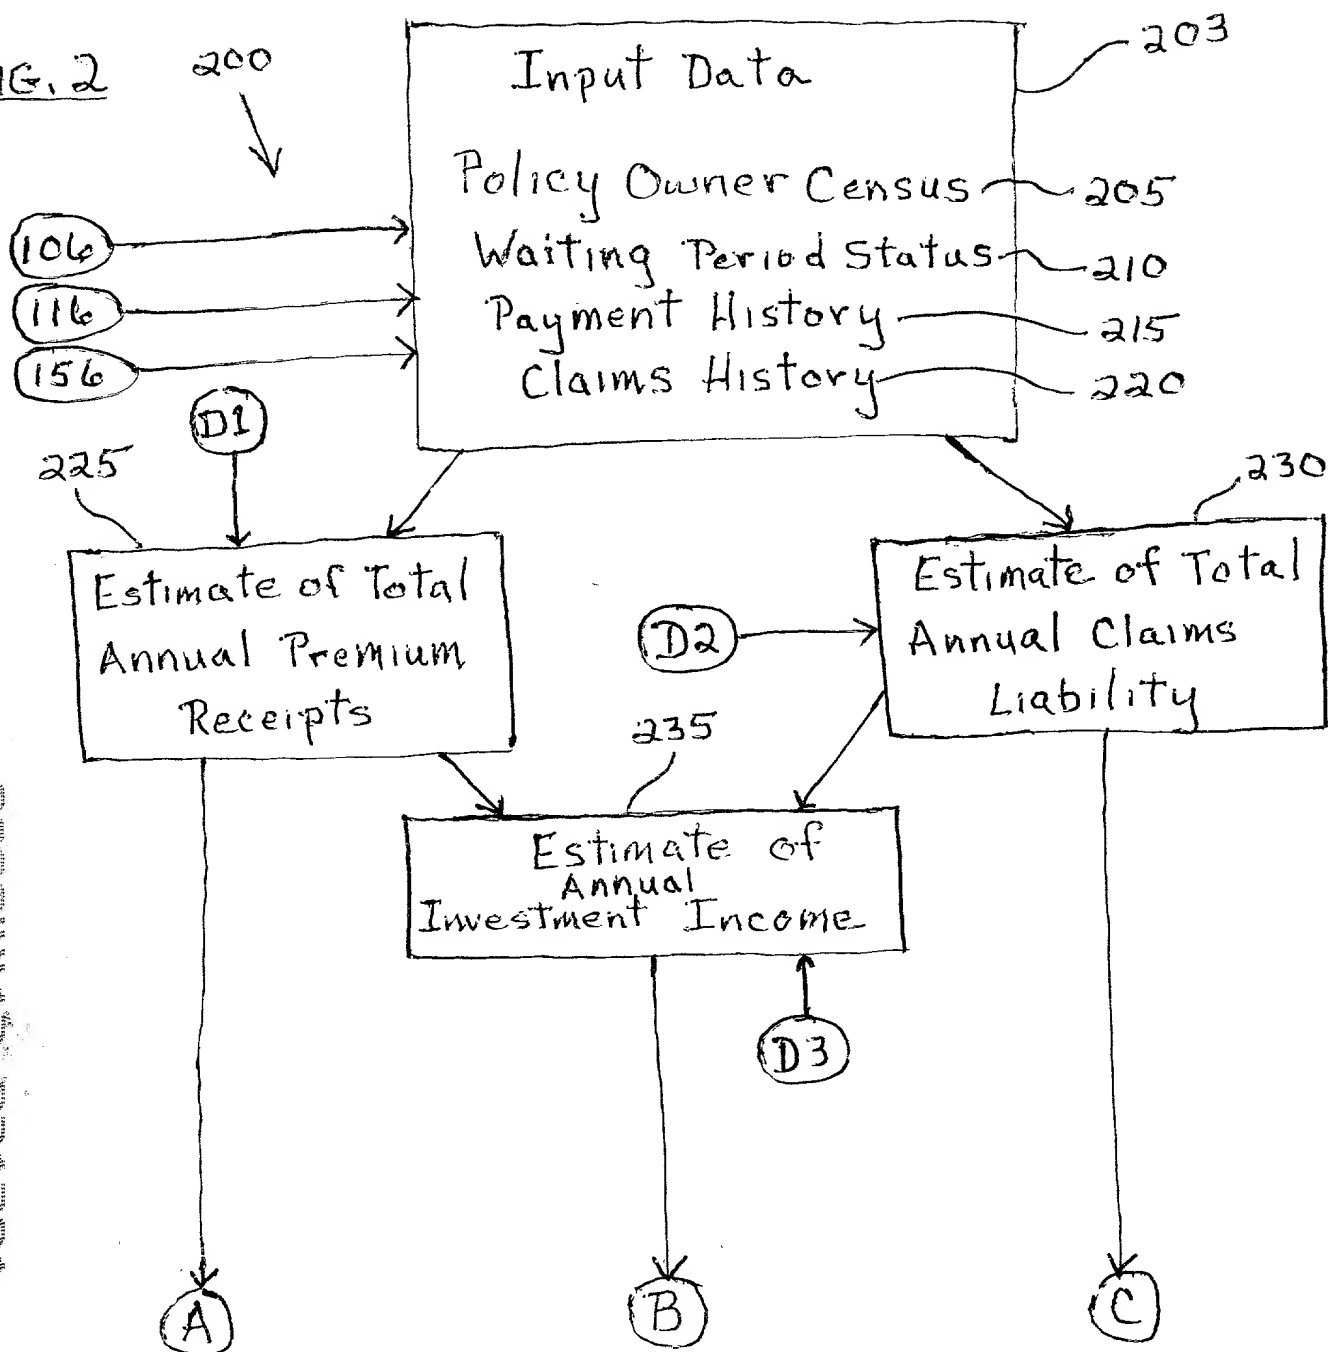 IG. 2
200
203
Input Data
Policy Owner Census
205
Waiting Period Status
210
Payment History
215
Claims History
220
106
116
156
D1
225
230
Estimate of Total
Annual Premium
Receipts
D2
Estimate of Total
Annual Claims
Liability
235
Estimate of
Annual
Investment Income
D3
A
B
C